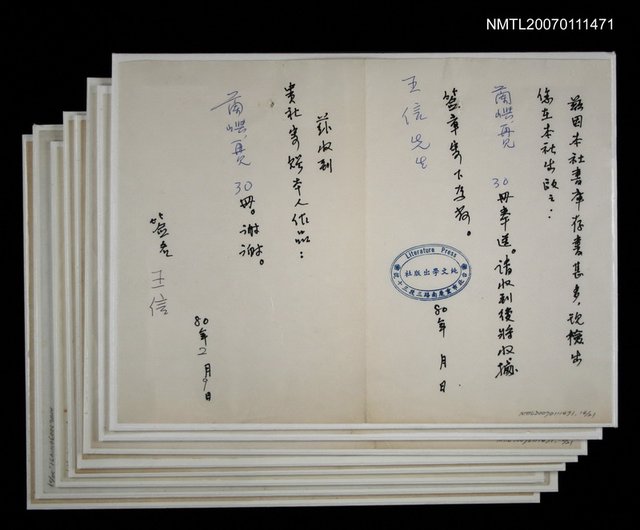 NMTL20070111471
茲因本社書庫存書甚多，現檢出
您在本社出版之：
蘭嶼再見 30冊奉送。請收到後將收據
簽章寄下為荷。
王信先生
Literature Press
純文學出版社
80年 月 日
茲收到
貴社寄贈本人作品：
蘭嶼再見 30冊。謝謝。
簽名 王信
80年2月9日
NMTL20070111471